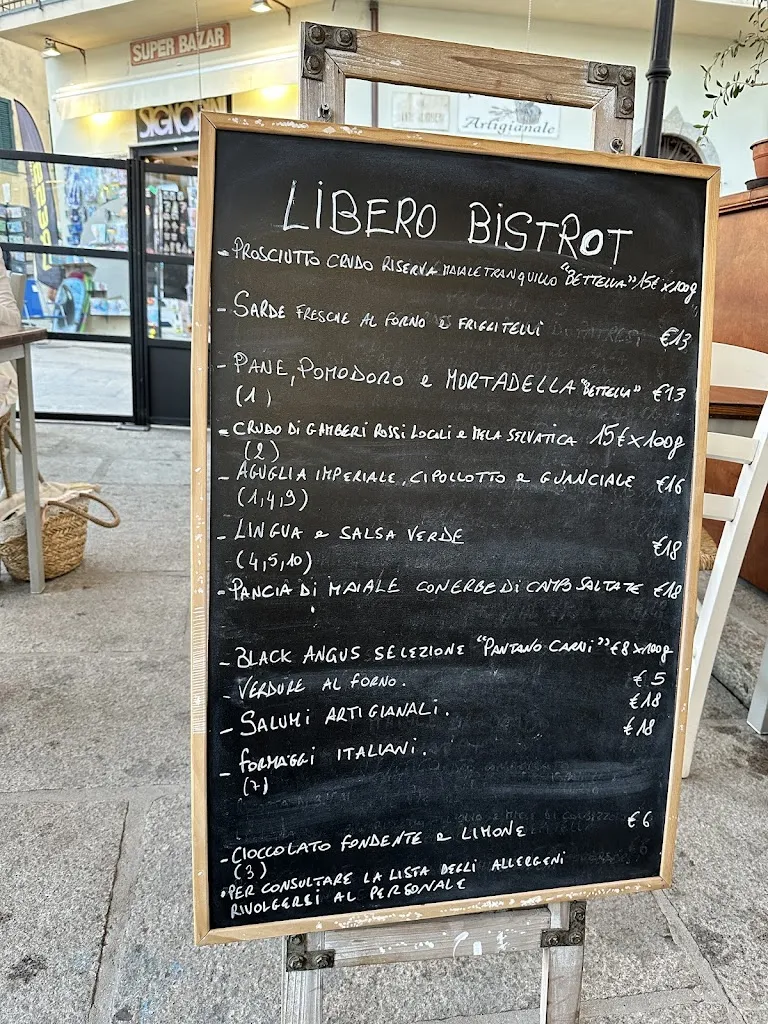 SUPER BAZAR
Artigianale
LIBERO BISTROT
- PROSCIUTTO CRUDO RISERVA MAIALE TRANQUILLO "BETTELLA" 15€ x 100g
- SARDE FRESCHE AL FORNO e FRIGGITELLI €13
- PANE, POMODORO e MORTADELLA "BETTELLA" €13
(1)
- CRUDO DI GAMBERI ROSSI LOCALI e MELA SELVATICA 15€ x 100g
(2)
- AGUGLIA IMPERIALE, CIPOLLOTTO e GUANCIALE €16
(1,4,9)
- LINGUA e SALSA VERDE €18
(4,5,10)
- PANCIA DI MAIALE CON ERBE DI CAMPO SALTATE €18
- BLACK ANGUS SELEZIONE "PANTANO CARNI" €8 x 100g
- VERDURE AL FORNO. € 5
- SALUMI ARTIGIANALI. €18
- FORMAGGI ITALIANI. €18
(7)
- CIOCCOLATO FONDENTE e LIMONE €6
(3)
• PER CONSULTARE LA LISTA DEGLI ALLERGENI
RIVOLGERSI AL PERSONALE